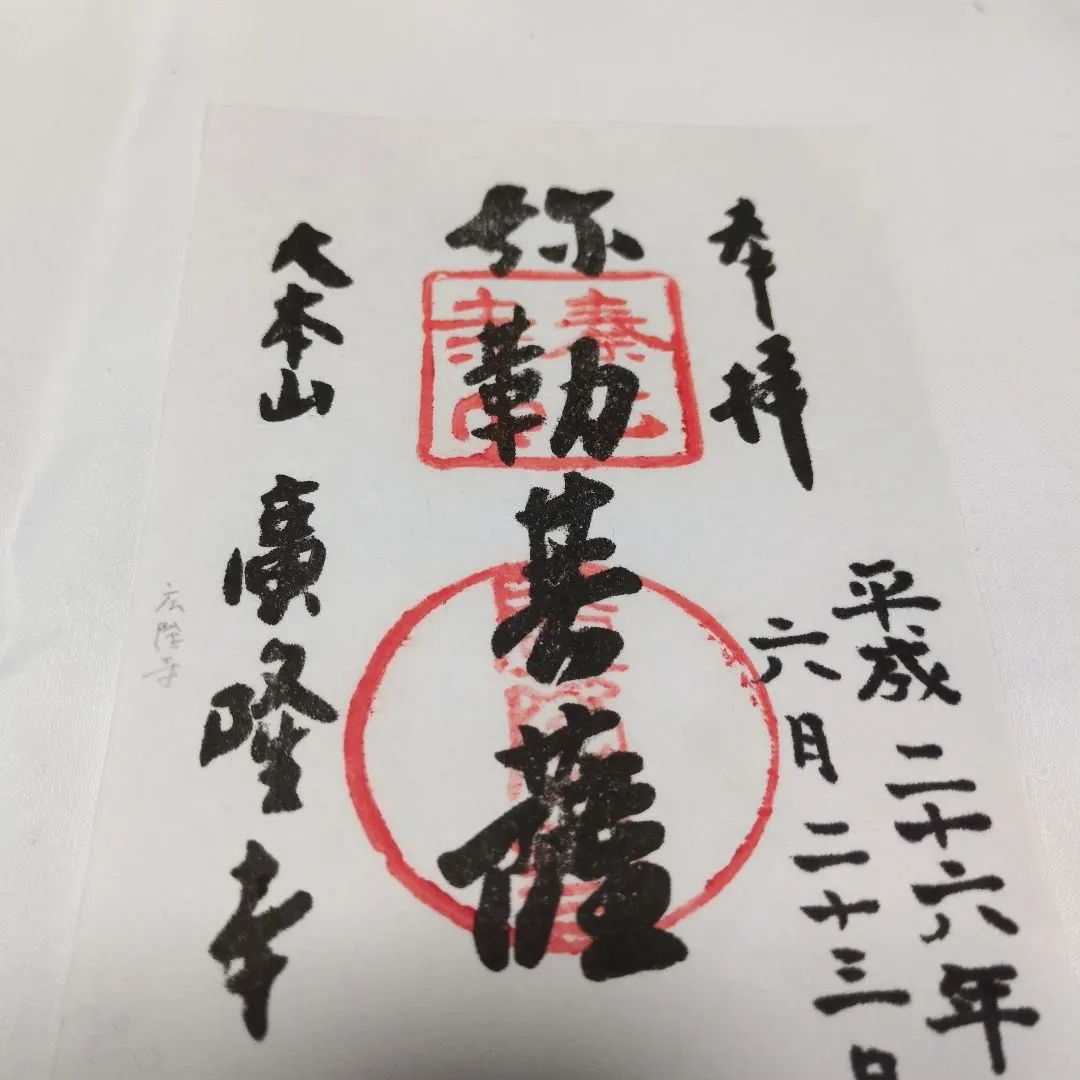 奉拝
平成二十六年
六月二十三日
弥勒菩薩
大本山 廣隆寺
広隆寺